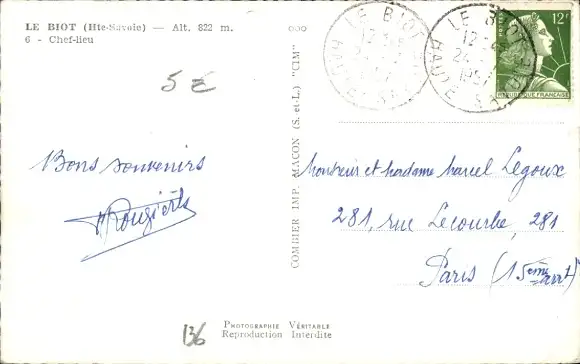 LE BIOT (Hte-Savoie) — Alt. 822 m.
6 - Chef-lieu
5 €
Bons souvenirs
136
COMBIER IMP. MACON (S. et-L.) "CIM"
PHOTOGRAPHIE VÉRITABLE
Reproduction Interdite
LE BIOT
LE BIOT
12
24
1957
HAUTE SAVOIE
12F
POSTES
REPUBLIQUE FRANÇAISE
Monsieur et Madame Marcel Legoux
281, rue Lecourbe, 281
Paris (15ème arrt)